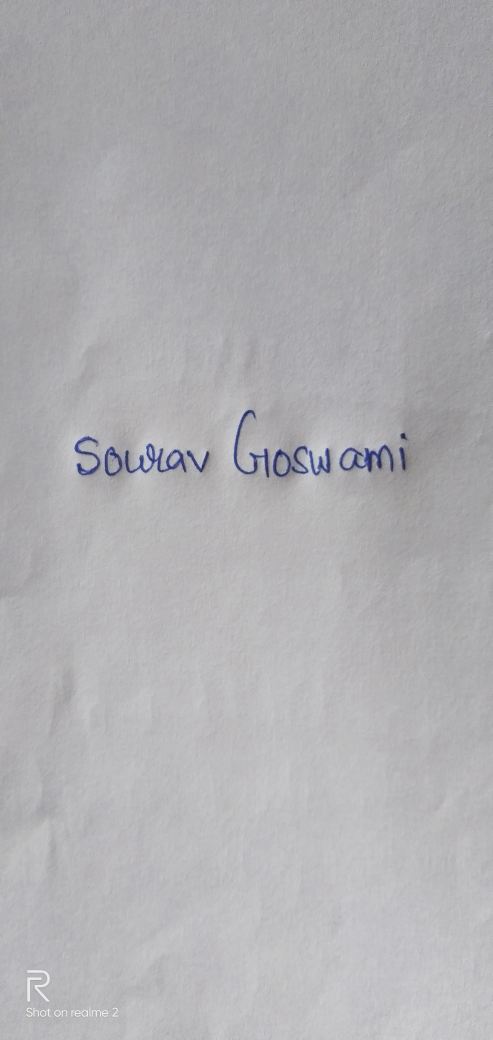 Sourav Goswami
R
Shot on realme 2